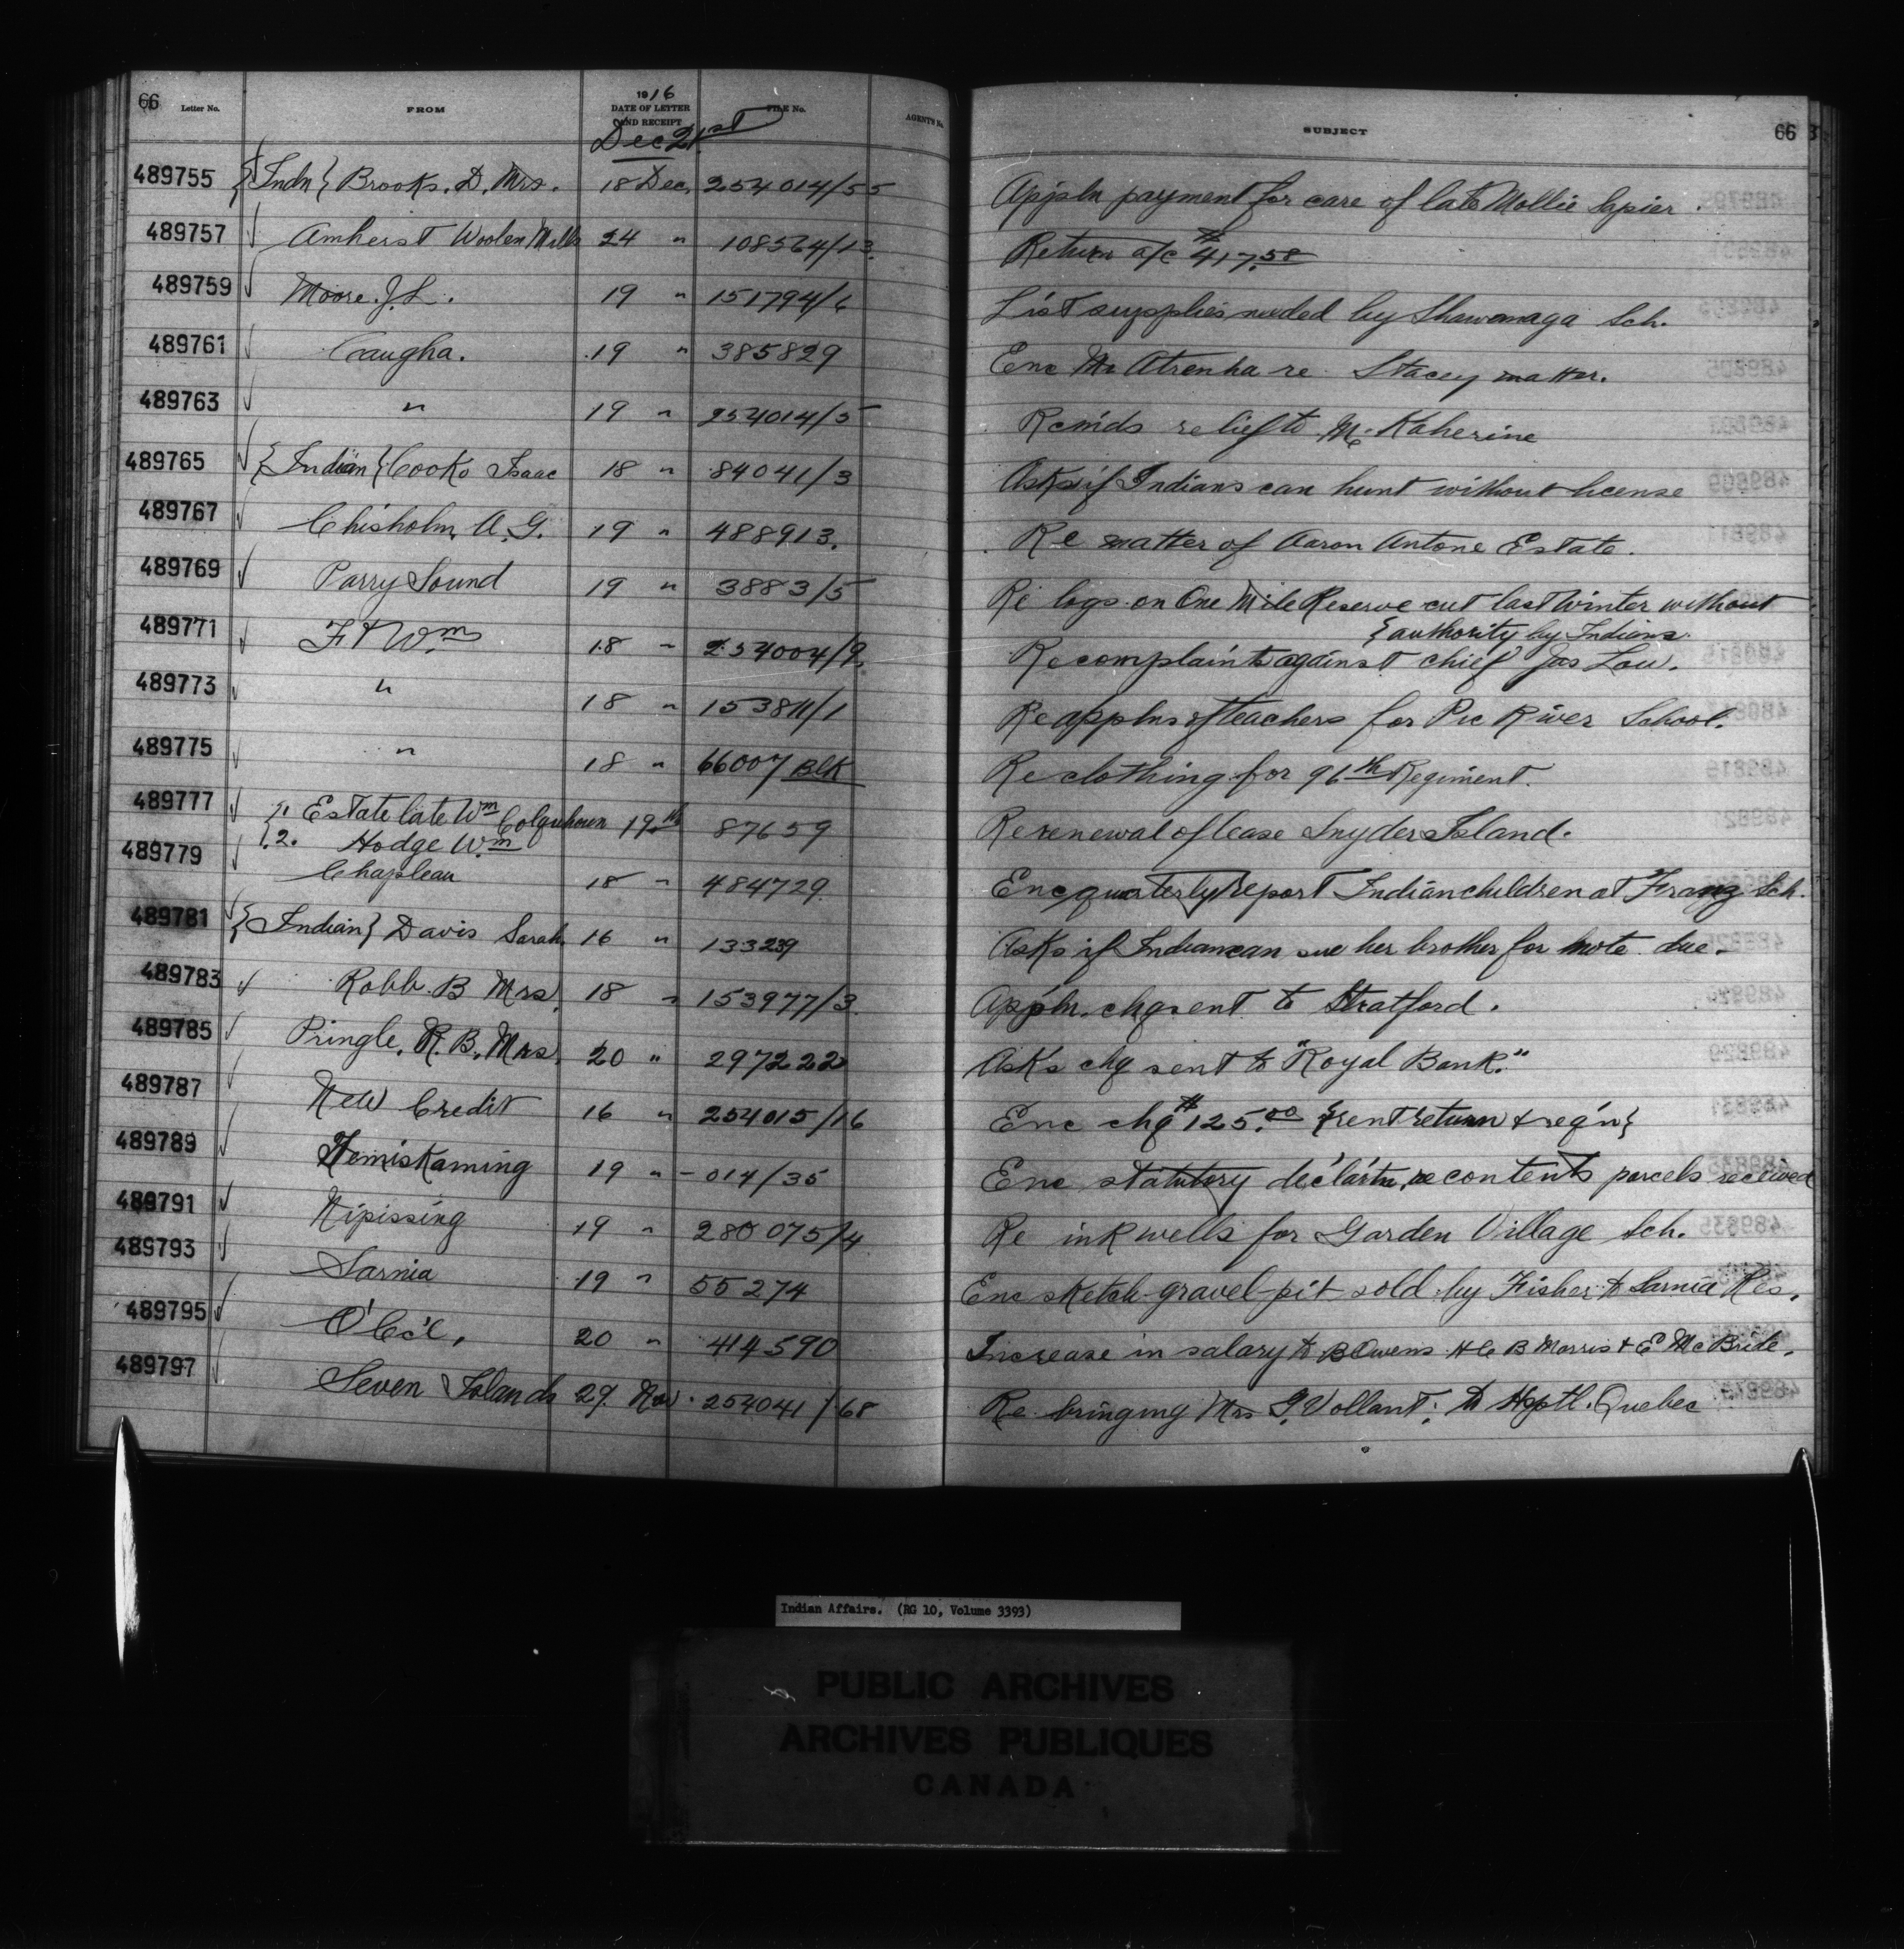 66 Letter No. FROM 1916 DATE OF LETTER AND RECEIPT FILE No. AGENT'S No. SUBJECT 66
Dec 21st
489755 {Indn} Brooks, D. Mrs. 18 Dec. 254014/55 Appln payment for care of late Mollie Lapier.
489757 Amherst Woolen Mills 24 " 108564/13. Return a/c $417.58
489759 Moore J.L. 19 " 151794/6 List supplies needed by Shawanaga Sch.
489761 Caugha. 19 " 385829 Enc Mr Atrenha re Stacey matter.
489763 " 19 " 254014/5 Recm'ds relief to Mc Kaherine
489765 {Indian} Cooko Isaac 18 " 84041/3 Asks if Indians can hunt without license
489767 Chisholm, A.G. 19 " 488913. Re matter of Aaron Antone Estate.
489769 Parry Sound 19 " 3883/5 Re logs on One Mile Reserve cut last Winter without
{authority by Indians.
489771 Ft Wm 18 " 254004/9. Re complaints against chief Jas Lou.
489773 " 18 " 153811/1 Re applns of teachers for Pic River School.
489775 " 18 " 66007 Blk Re clothing for 96th Regiment.
489777 {1. Estate late Wm Colquhoun 19th 87659 Re renewal of lease Snyder Island.
{.2. Hodge Wm
489779 Chapleau 18 " 484729. Enc quarterly report Indian children at Franz Sch.
489781 {Indian} Davis Sarah 16 " 133239 Asks if Indian can sue her brother for note due.
489783 Robb. B Mrs. 18 " 153977/3. Appln. chq sent to Stratford.
489785 Pringle, R.B. Mrs. 20 " 297222 Asks chq sent to "Royal Bank."
489787 New Credit 16 " 254015/16 Enc chq $125.00 {rent return & reg'n}
489789 Temiskaming 19 " -014/35 Enc statutory declar'tn, re contents parcels received
489791 Nipissing 19 " 280075/4 Re ink wells for Garden Village Sch.
489793 Sarnia 19 " 55274 Enc sketch gravel-pit sold by Fisher to Sarnia Res.
489795 O'Cc'l, 20 " 414590 Increase in salary to B Owens H C B Morris & E McBride.
489797 Seven Islands 29 Nov. 254041/68 Re bringing Mrs G. Vollant; to Hsptl. Quebec
Indian Affairs. (RG 10, Volume 3393)
PUBLIC ARCHIVES
ARCHIVES PUBLIQUES
CANADA